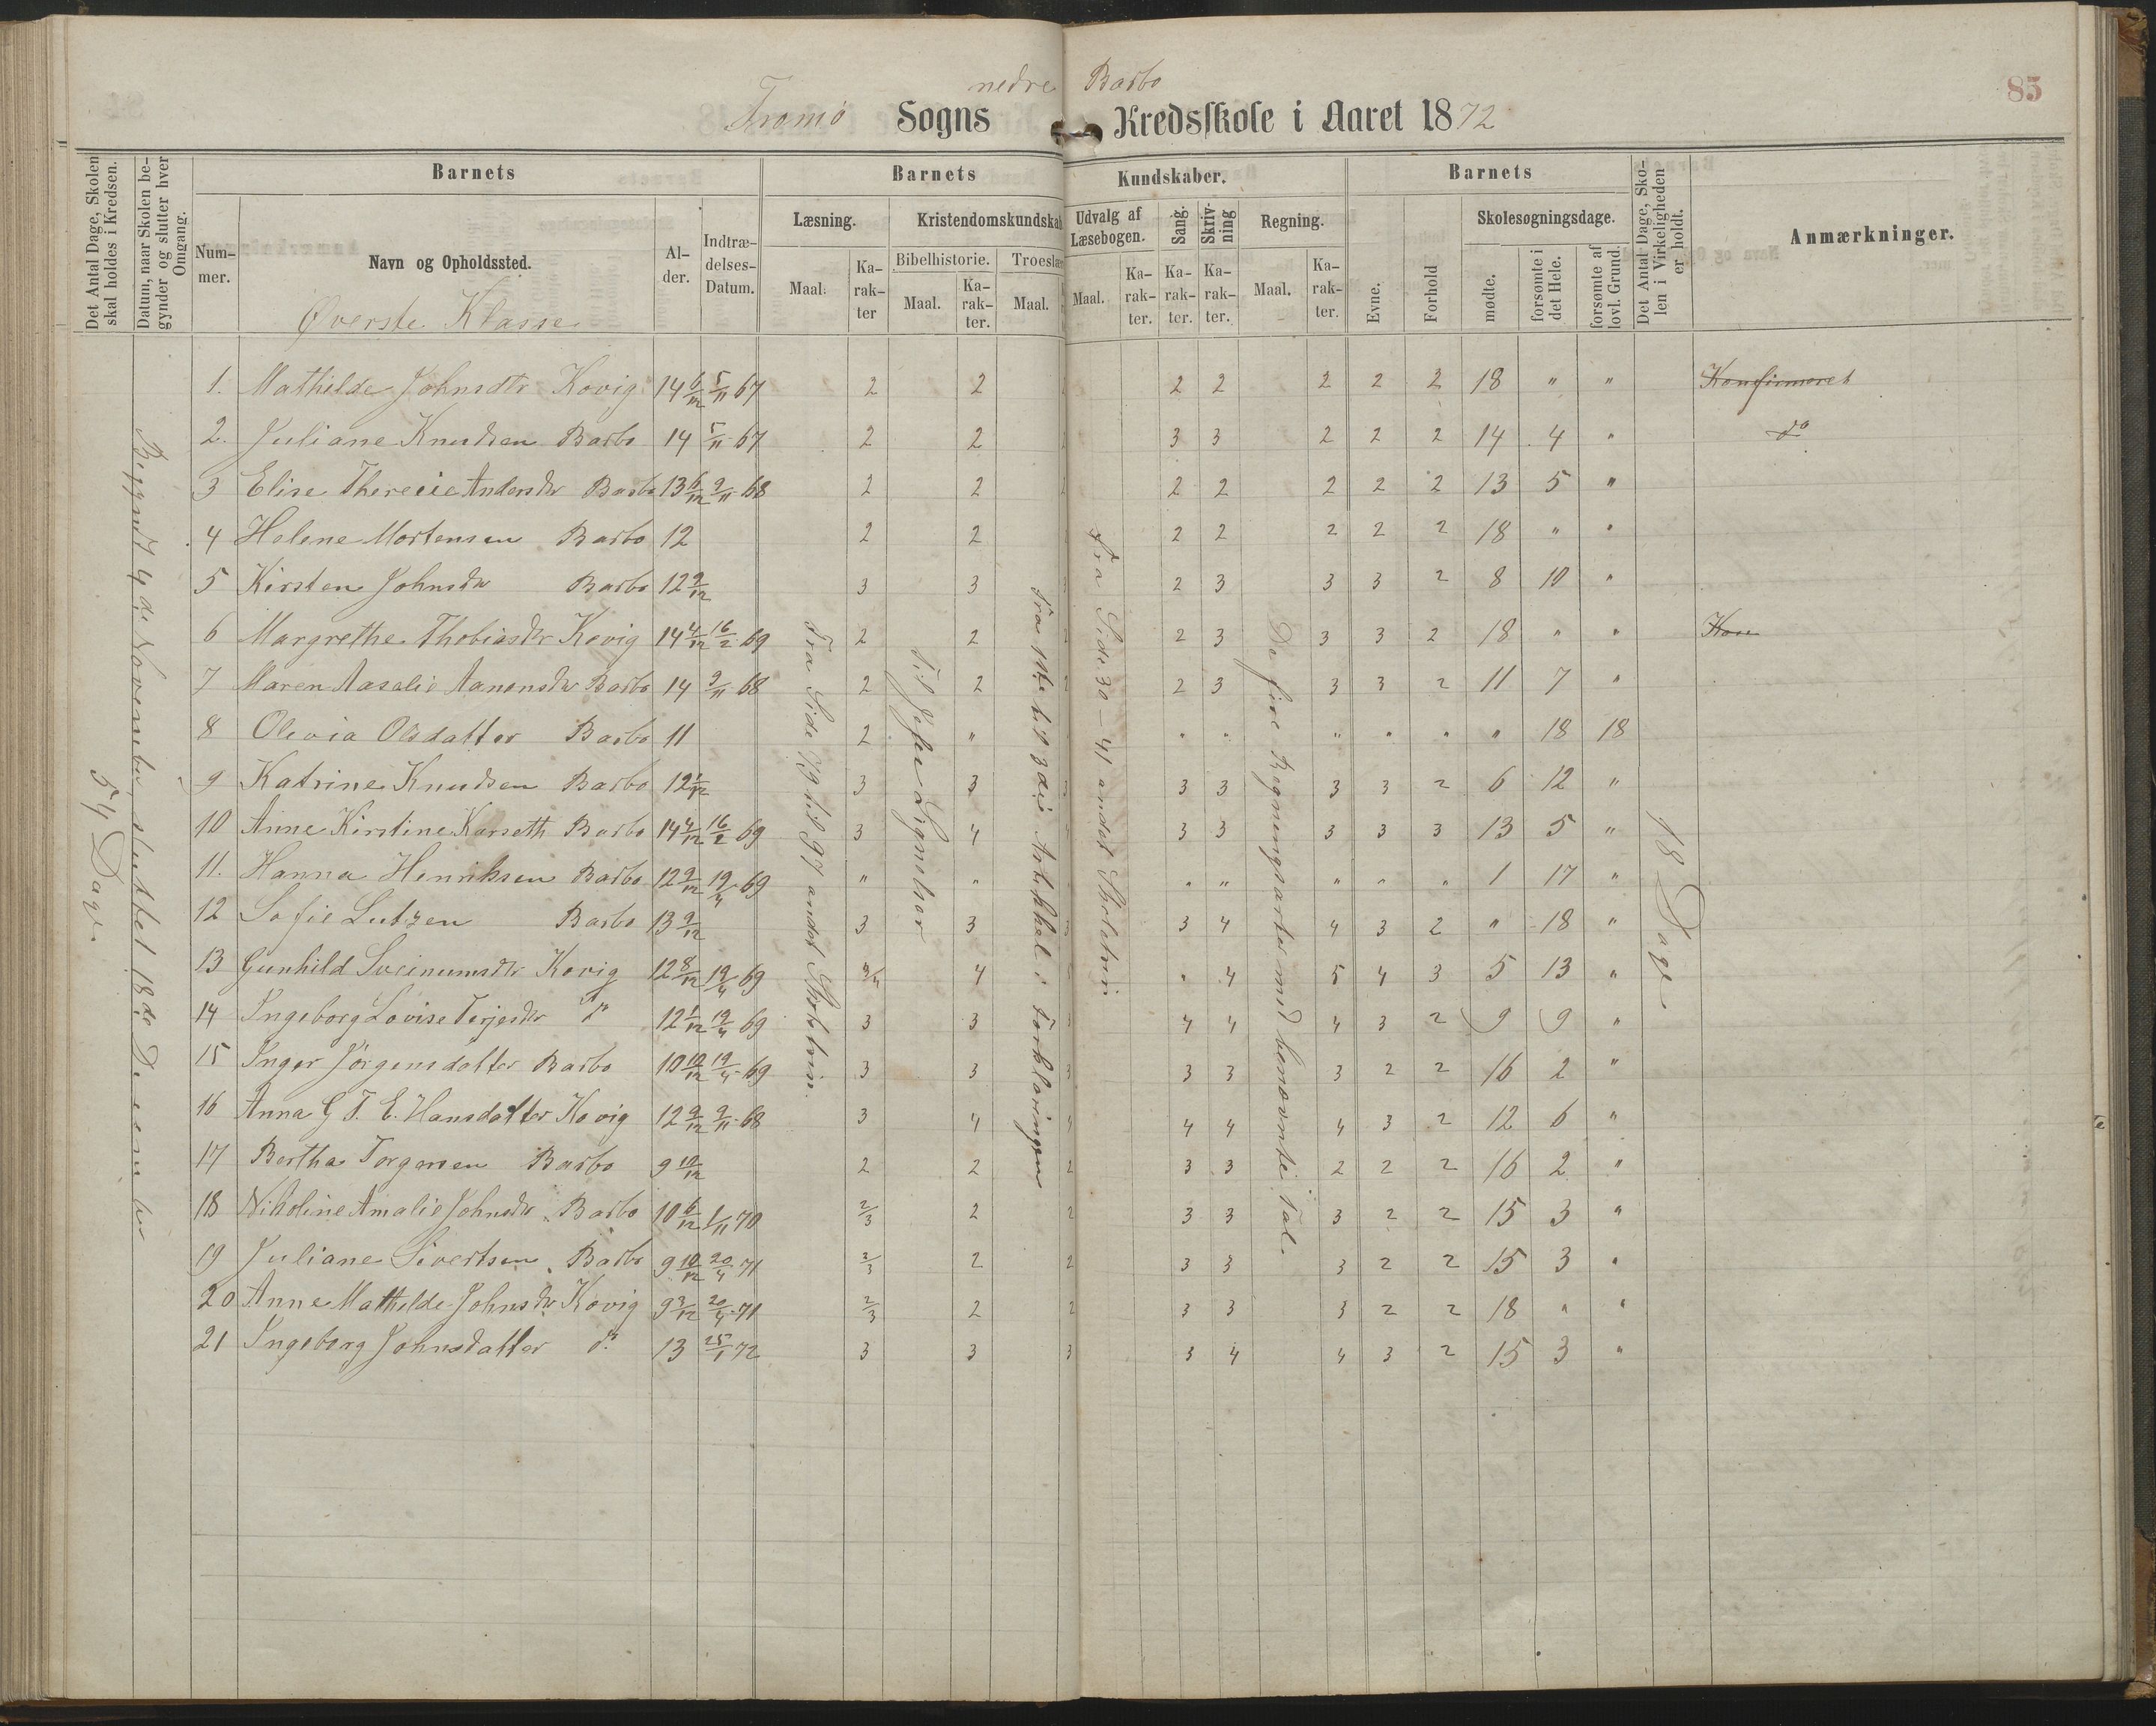 nedre Barbo
85
Tromø Sogns Kredsskole i Aaret 1872
Det Antal Dage, Skolen skal holdes i Kredsen.
Datum, naar Skolen begynder og slutter hver Omgang.
Barnets
Barnets Kundskaber.
Barnets
Det Antal Dage, Skolen i Virkeligheden er holdt.
Anmærkninger.
Nummer.
Navn og Opholdssted.
Alder.
Indtrædelses-Datum.
Læsning.
Kristendomskundskab
Udvalg af Læsebogen.
Sang.
Skrivning
Regning.
Evne.
Forhold
Skolesøgningsdage.
Bibelhistorie.
Troeslær
Maal.
Karakter
Maal.
Karakter.
Maal.
Maal.
Karakter.
Karakter.
Karakter.
Maal.
Karakter.
mødte.
forsømte i det Hele.
forsømte af lovl. Grund.
Øverste Klasse
1. Mathilde Johnsdtr Kovig 14 6/12 5/11 67 2 2 2 2 2 2 2 18 " " Konfirmeret
2. Juliane Knudsen Barbo 14 5/11 67 2 2 3 3 2 2 2 14 4 " do
3 Elise Therecie Andersdtr Barbo 13 6/12 9/11 68 2 2 2 2 2 2 2 13 5 "
4 Helene Mortensen Barbo 12 2 2 2 2 2 2 2 18 " "
5 Kirsten Johnsdtr Barbo 12 9/12 3 3 2 3 3 3 2 8 10 "
6 Margrethe Thobiasdtr Kovig 14 4/12 16/2 69 2 2 2 3 3 3 2 18 " " Kon
7 Maren Aasalie Aanonsdtr Barbo 14 9/11 68 2 2 2 3 3 3 2 11 7 "
8 Olevia Olsdatter Barbo 11 2 " " " " " " " 18 18
9 Katrine Knudsen Barbo 12 1/12 3 3 3 3 3 3 2 6 12 "
10 Anne Kirstine Karseth Barbo 14 4/12 16/2 69 3 4 3 3 3 3 3 13 5 "
11. Hanna Henriksen Barbo 12 9/12 19/4 69 " " " " " " " 1 17 "
12 Sofie Lutzen Barbo 13 9/12 3 3 3 4 4 3 2 " 18 "
13 Gunhild Sveinumsdtr Kovig 12 8/12 19/4 69 3/4 4 " 4 5 4 3 5 13 "
14 Ingeborg Lovise Terjesdtr do 12 1/12 19/4 69 3 3 4 4 4 3 2 9 9 "
15 Inger Jörgensdatter Barbo 10 10/12 19/4 69 3 3 3 3 3 2 2 16 2 "
16 Anna G T. E. Hansdatter Kovig 12 9/12 9/11 68 3 4 4 4 4 3 2 12 6 "
17 Bertha Torgersen Barbo 9 10/12 2 2 2 3 3 2 2 2 16 2 "
18 Nikoline Amalie Johnsdtr Barbo 10 6/12 1/11 70 2/3 2 2 3 3 3 2 2 15 3 "
19 Juliane Sivertsen Barbo 9 10/12 20/4 71 2/3 2 2 3 3 3 2 2 15 3 "
20 Anne Mathilde Johnsdtr Kovig 9 3/12 20/4 71 2/3 2 2 3 3 3 2 2 18 " "
21 Ingeborg Johnsdatter do 13 25/1 72 3 3 3 3 4 4 3 2 15 3 "
54 Dage.
Begyndt 4de November, sluttet 18de December
Fra Side 79 til 97 andet Skoletrin.
Til Jesu Lignelser
Fra 1ste til 3die Artikkel i Forklaringen
Fra Side 30 – 41 andet Skoletrin
De fire Regningsarter med benævnte Tal.
18 Dage